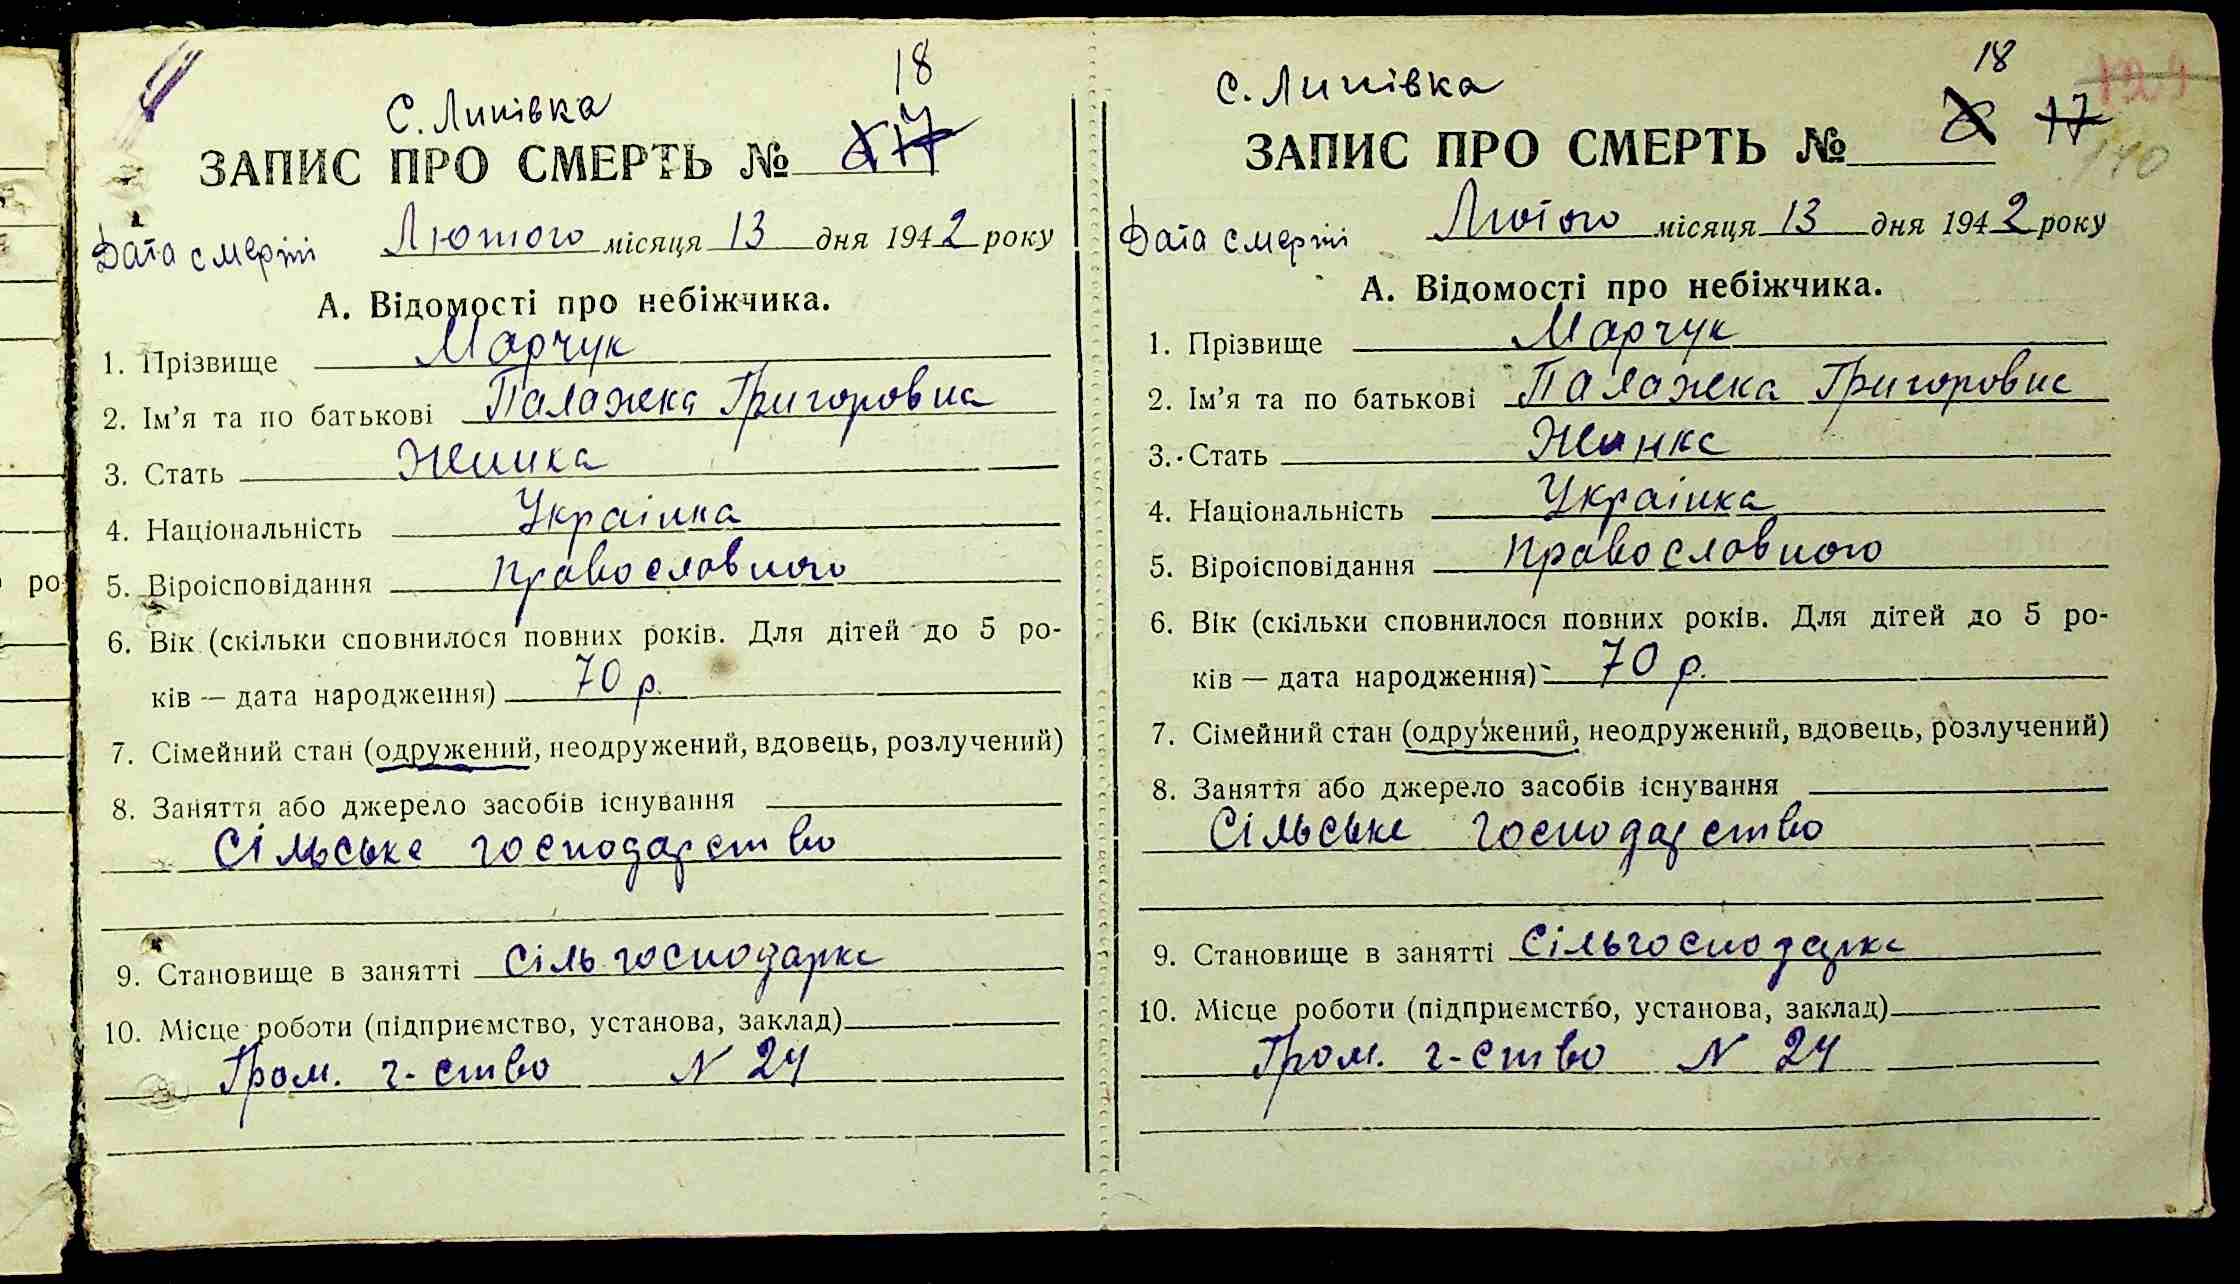 ро
18
с. Липівка
ЗАПИС ПРО СМЕРТЬ № 17
Дата смерти Лютого місяця 13 дня 1942 року
А. Відомості про небіжчика.
1. Прізвище Марчук
2. Ім'я та по батькові Палажка Григоровна
3. Стать Жинка
4. Національність Українка
5. Віроісповідання Православного
6. Вік (скільки сповнилося повних років. Для дітей до 5 ро-
ків — дата народження) 70 р.
7. Сімейний стан (одружений, неодружений, вдовець, розлучений)
8. Заняття або джерело засобів існування
Сільське господарство
9. Становище в занятті сільгосподарка
10. Місце роботи (підприємство, установа, заклад)
Гром. г-ство N 24
18
с. Липівка
ЗАПИС ПРО СМЕРТЬ № 8 17
170
Дата смерти Лютого місяця 13 дня 1942 року
А. Відомості про небіжчика.
1. Прізвище Марчук
2. Ім'я та по батькові Палажка Григоровна
3. Стать Жинка
4. Національність Українка
5. Віроісповідання Православного
6. Вік (скільки сповнилося повних років. Для дітей до 5 ро-
ків — дата народження) 70 р.
7. Сімейний стан (одружений, неодружений, вдовець, розлучений)
8. Заняття або джерело засобів існування
Сільське господарство
9. Становище в занятті Сільгосподарка
10. Місце роботи (підприємство, установа, заклад)
Гром. г-ство N 24